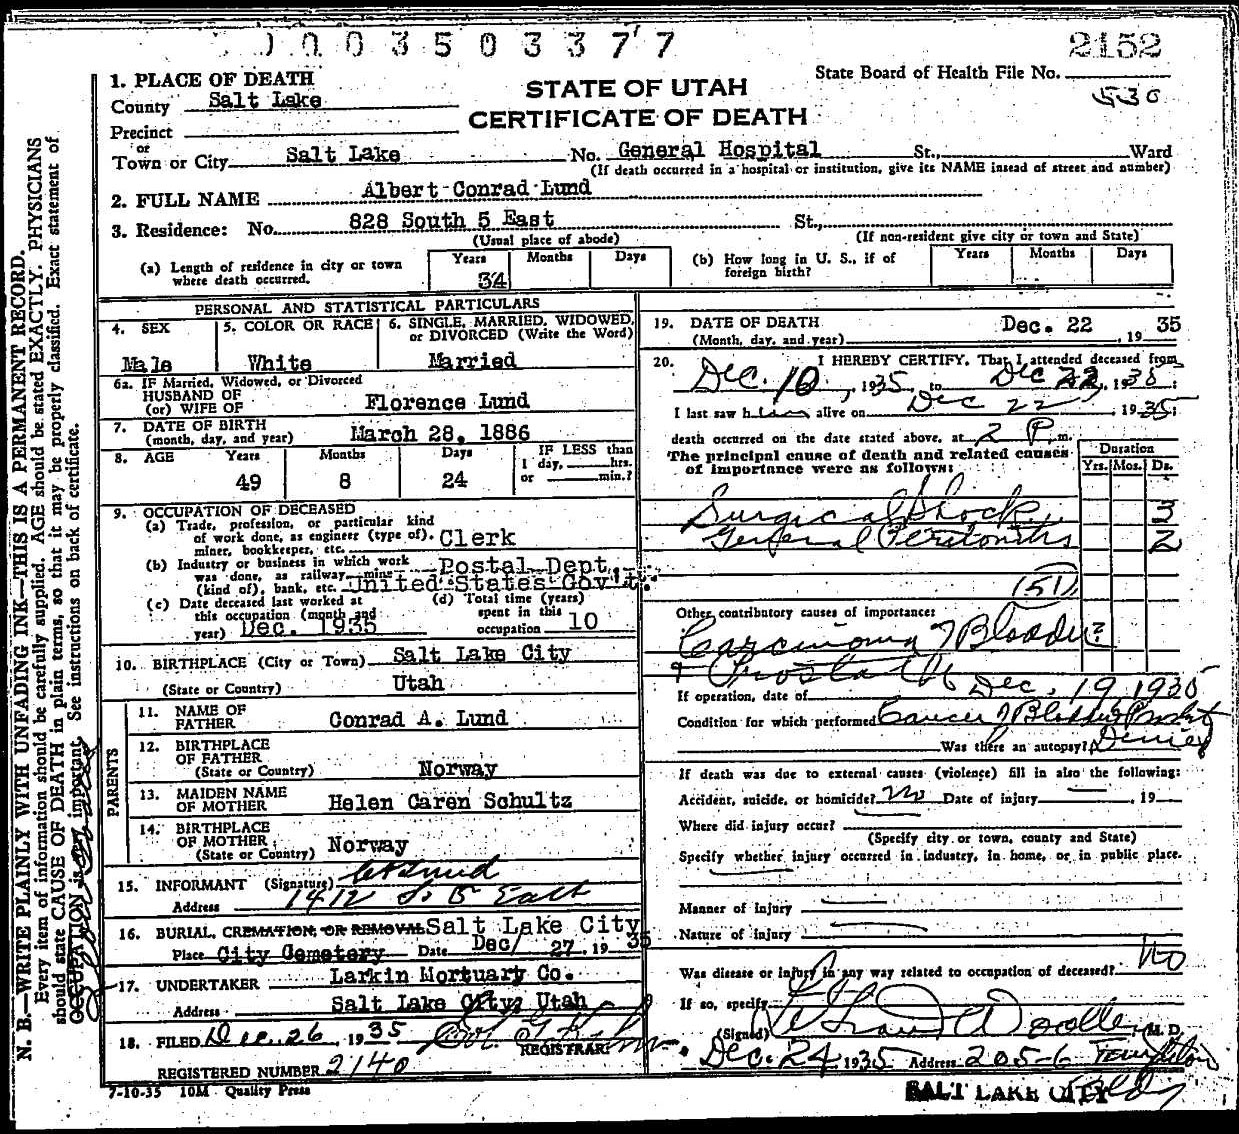 0 0 0 3 5 0 3 3 7 7
2152
1. PLACE OF DEATH
County Salt Lake
Precinct
or
Town or City Salt Lake No. General Hospital St., Ward
(If death occurred in a hospital or institution, give its NAME insead of street and number)
STATE OF UTAH
CERTIFICATE OF DEATH
State Board of Health File No.
530
2. FULL NAME Albert Conrad Lund
3. Residence: No. 828 South 5 East St.,
(Usual place of abode) (If non-resident give city or town and State)
(a) Length of residence in city or town where death occurred. Years 34 Months Days
(b) How long in U. S., if of foreign birth? Years Months Days
PERSONAL AND STATISTICAL PARTICULARS
4. SEX Male
5. COLOR OR RACE White
6. SINGLE, MARRIED, WIDOWED, or DIVORCED (Write the Word) Married
6a. IF Married, Widowed, or Divorced
HUSBAND OF
(or) WIFE OF Florence Lund
7. DATE OF BIRTH
(month, day, and year) March 28, 1886
8. AGE Years 49 Months 8 Days 24 IF LESS than 1 day, hrs. or min.?
9. OCCUPATION OF DECEASED
(a) Trade, profession, or particular kind
of work done, as engineer (type of), Clerk
miner, bookkeeper, etc.
(b) Industry or business in which work Postal Dept.
was done, as railway mine
(kind of), bank, etc. United States Gov't.
(c) Date deceased last worked at
this occupation (month and
year) Dec. 1935
(d) Total time (years)
spent in this
occupation 10
10. BIRTHPLACE (City or Town) Salt Lake City
(State or Country) Utah
PARENTS
11. NAME OF
FATHER Conrad A. Lund
12. BIRTHPLACE
OF FATHER
(State or Country) Norway
13. MAIDEN NAME
OF MOTHER Helen Caren Schultz
14. BIRTHPLACE
OF MOTHER
(State or Country) Norway
15. INFORMANT (Signature)
Address 1412 S. 5 East
16. BURIAL, CREMATION, OR REMOVAL Salt Lake City
Place City Cemetery Date Dec/ 27, 1935
17. UNDERTAKER Larkin Mortuary Co.
Address Salt Lake City, Utah
18. FILED Dec. 26, 1935
REGISTRAR
REGISTERED NUMBER 2140
7-10-35 10M Quality Press
19. DATE OF DEATH
(Month, day, and year) Dec. 22, 1935
20. I HEREBY CERTIFY, That I attended deceased from
Dec. 10, 1935, to Dec 22, 1935;
I last saw him alive on Dec 22, 1935;
death occurred on the date stated above, at 2 P. m.
The principal cause of death and related causes
of importance were as follows:
Duration
Yrs. Mos. Ds.
Surgical Shock 3
General Peritonitis 2
(51)
Other contributory causes of importance:
Carcinoma of Bladder
& Prostate
If operation, date of Dec. 19 1935
Condition for which performed Cancer of Bladder Prostate
Was there an autopsy? Denied
If death was due to external causes (violence) fill in also the following:
Accident, suicide, or homicide? No Date of injury , 19
Where did injury occur?
(Specify city or town, county and State)
Specify whether injury occurred in industry, in home, or in public place.
Manner of Injury
Nature of injury
Was disease or injury in any way related to occupation of deceased? No
If so, specify
(Signed) M. D.
Dec. 24 1935 Address 205-6
SALT LAKE CITY
N. B.—WRITE PLAINLY WITH UNFADING INK—THIS IS A PERMANENT RECORD.
Every item of information should be carefully supplied. AGE should be stated EXACTLY. PHYSICIANS
should state CAUSE OF DEATH in plain terms, so that it may be properly classified. Exact statement of
OCCUPATION is very important. See instructions on back of certificate.